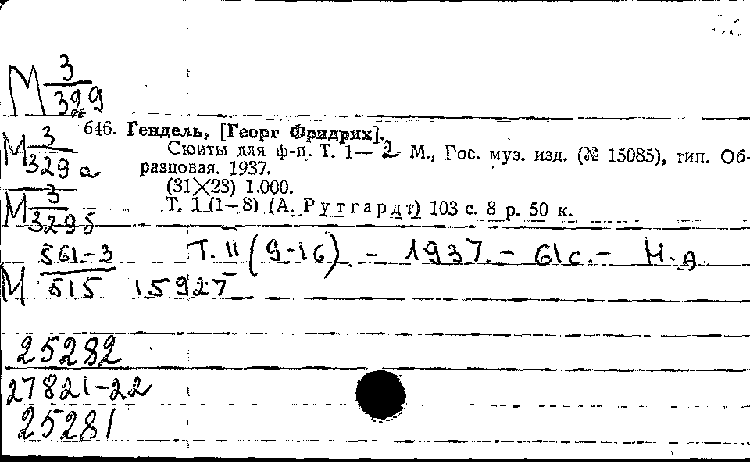 М 3/329
646. Гендель, [Георг Фридрих].
М 3/329 а
Сюиты для ф-п. Т. 1— 2 М., Гос. муз. изд. (№ 15085), тип. Об-
разцовая. 1937.
(31×23) 1.000.
М 3/329 б
Т. 1 (1—8) (А. Рутгардт) 103 с. 8 р. 50 к.
М 561-3/515
Т. II (9-16) - 1937. - 61с. - Н.д.
15927
25282
27821-22
25281